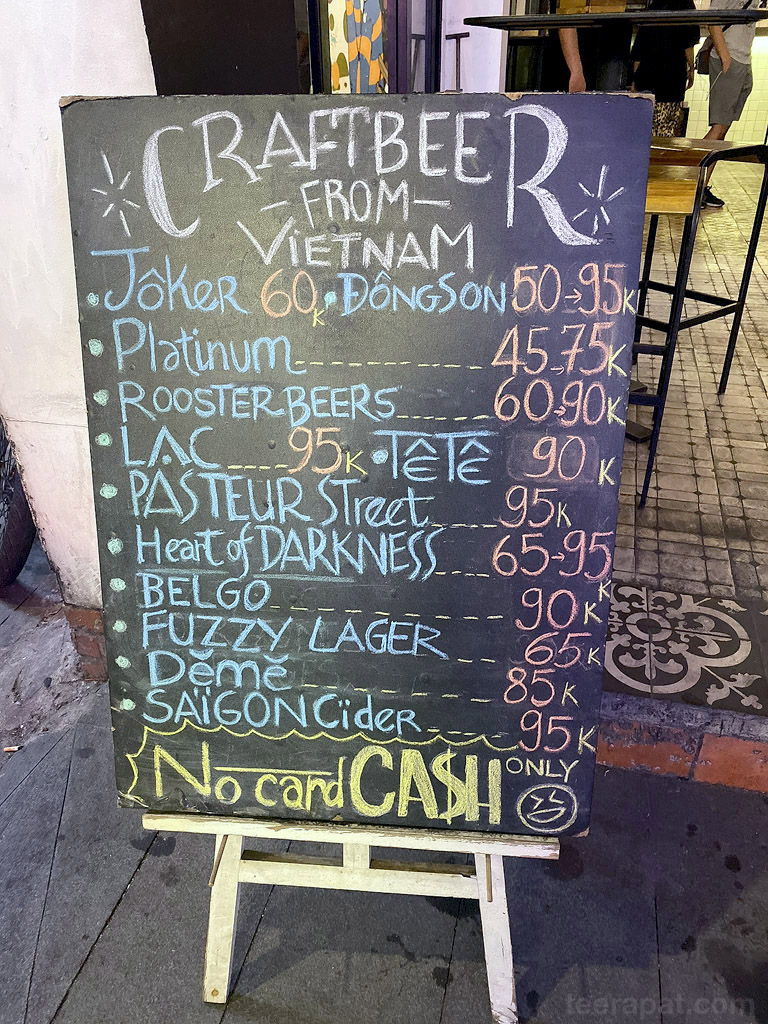 CRAFTBEER
—FROM—
VIETNAM
• JôKER 60K • ĐÔNGSON 50→95K
• Platinum 45→75K
• ROOSTERBEERS 60→90K
• LAC 95K • TÊTÊ 90K
• PASTEUR Street 95K
• Heart of DARKNESS 65→95K
• BELGO 90K
• FUZZY LAGER 65K
• Děmě 85K
• SAÏGON Cider 95K
No card CA$H ONLY
teerapat.com